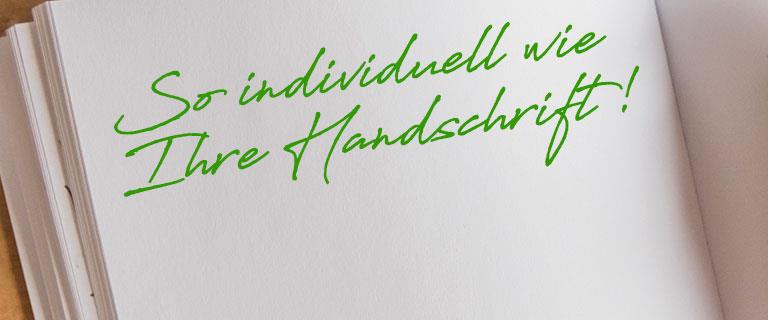 So individuell wie
Ihre Handschrift!